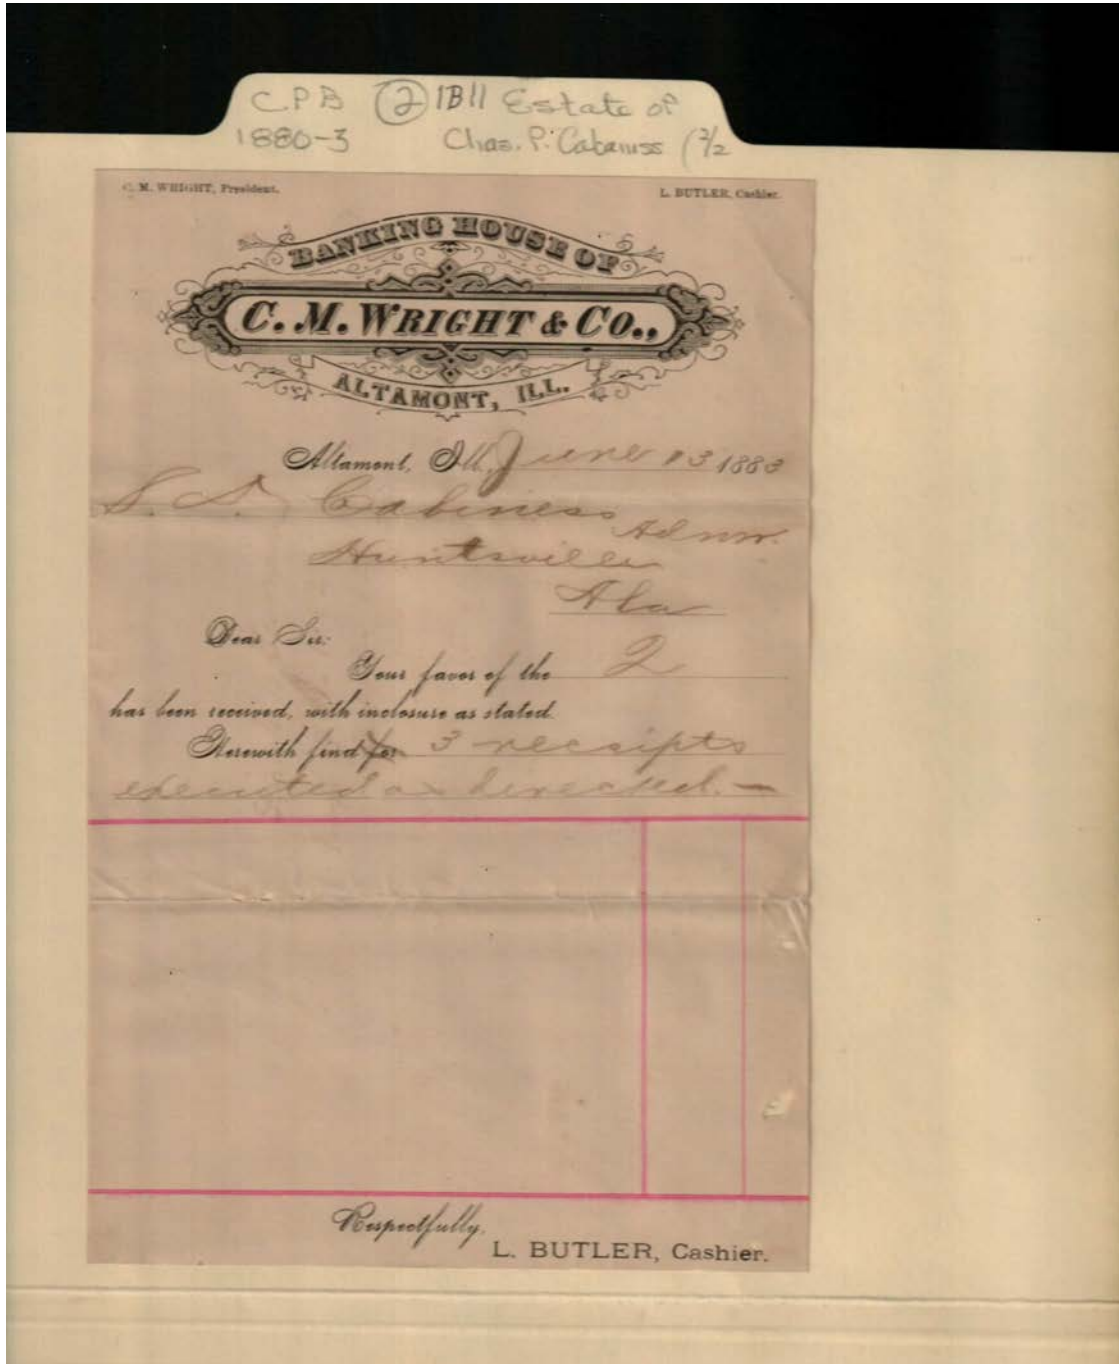 CPB ② 1B11 Estate of
1880-3 Chas. P. Cabaniss (2/2
C. M. WRIGHT, President. L. BUTLER, Cashier.
BANKING HOUSE OF
C. M. WRIGHT & CO.,
ALTAMONT, ILL.
Altamont, Ill., June 13 1883
S. D. Cabiness Admr.
Huntsville
Ala
Dear Sir:
Your favor of the 2
has been received, with inclosure as stated.
Herewith find for 3 receipts
executed as directed. —
Respectfully,
L. BUTLER, Cashier.